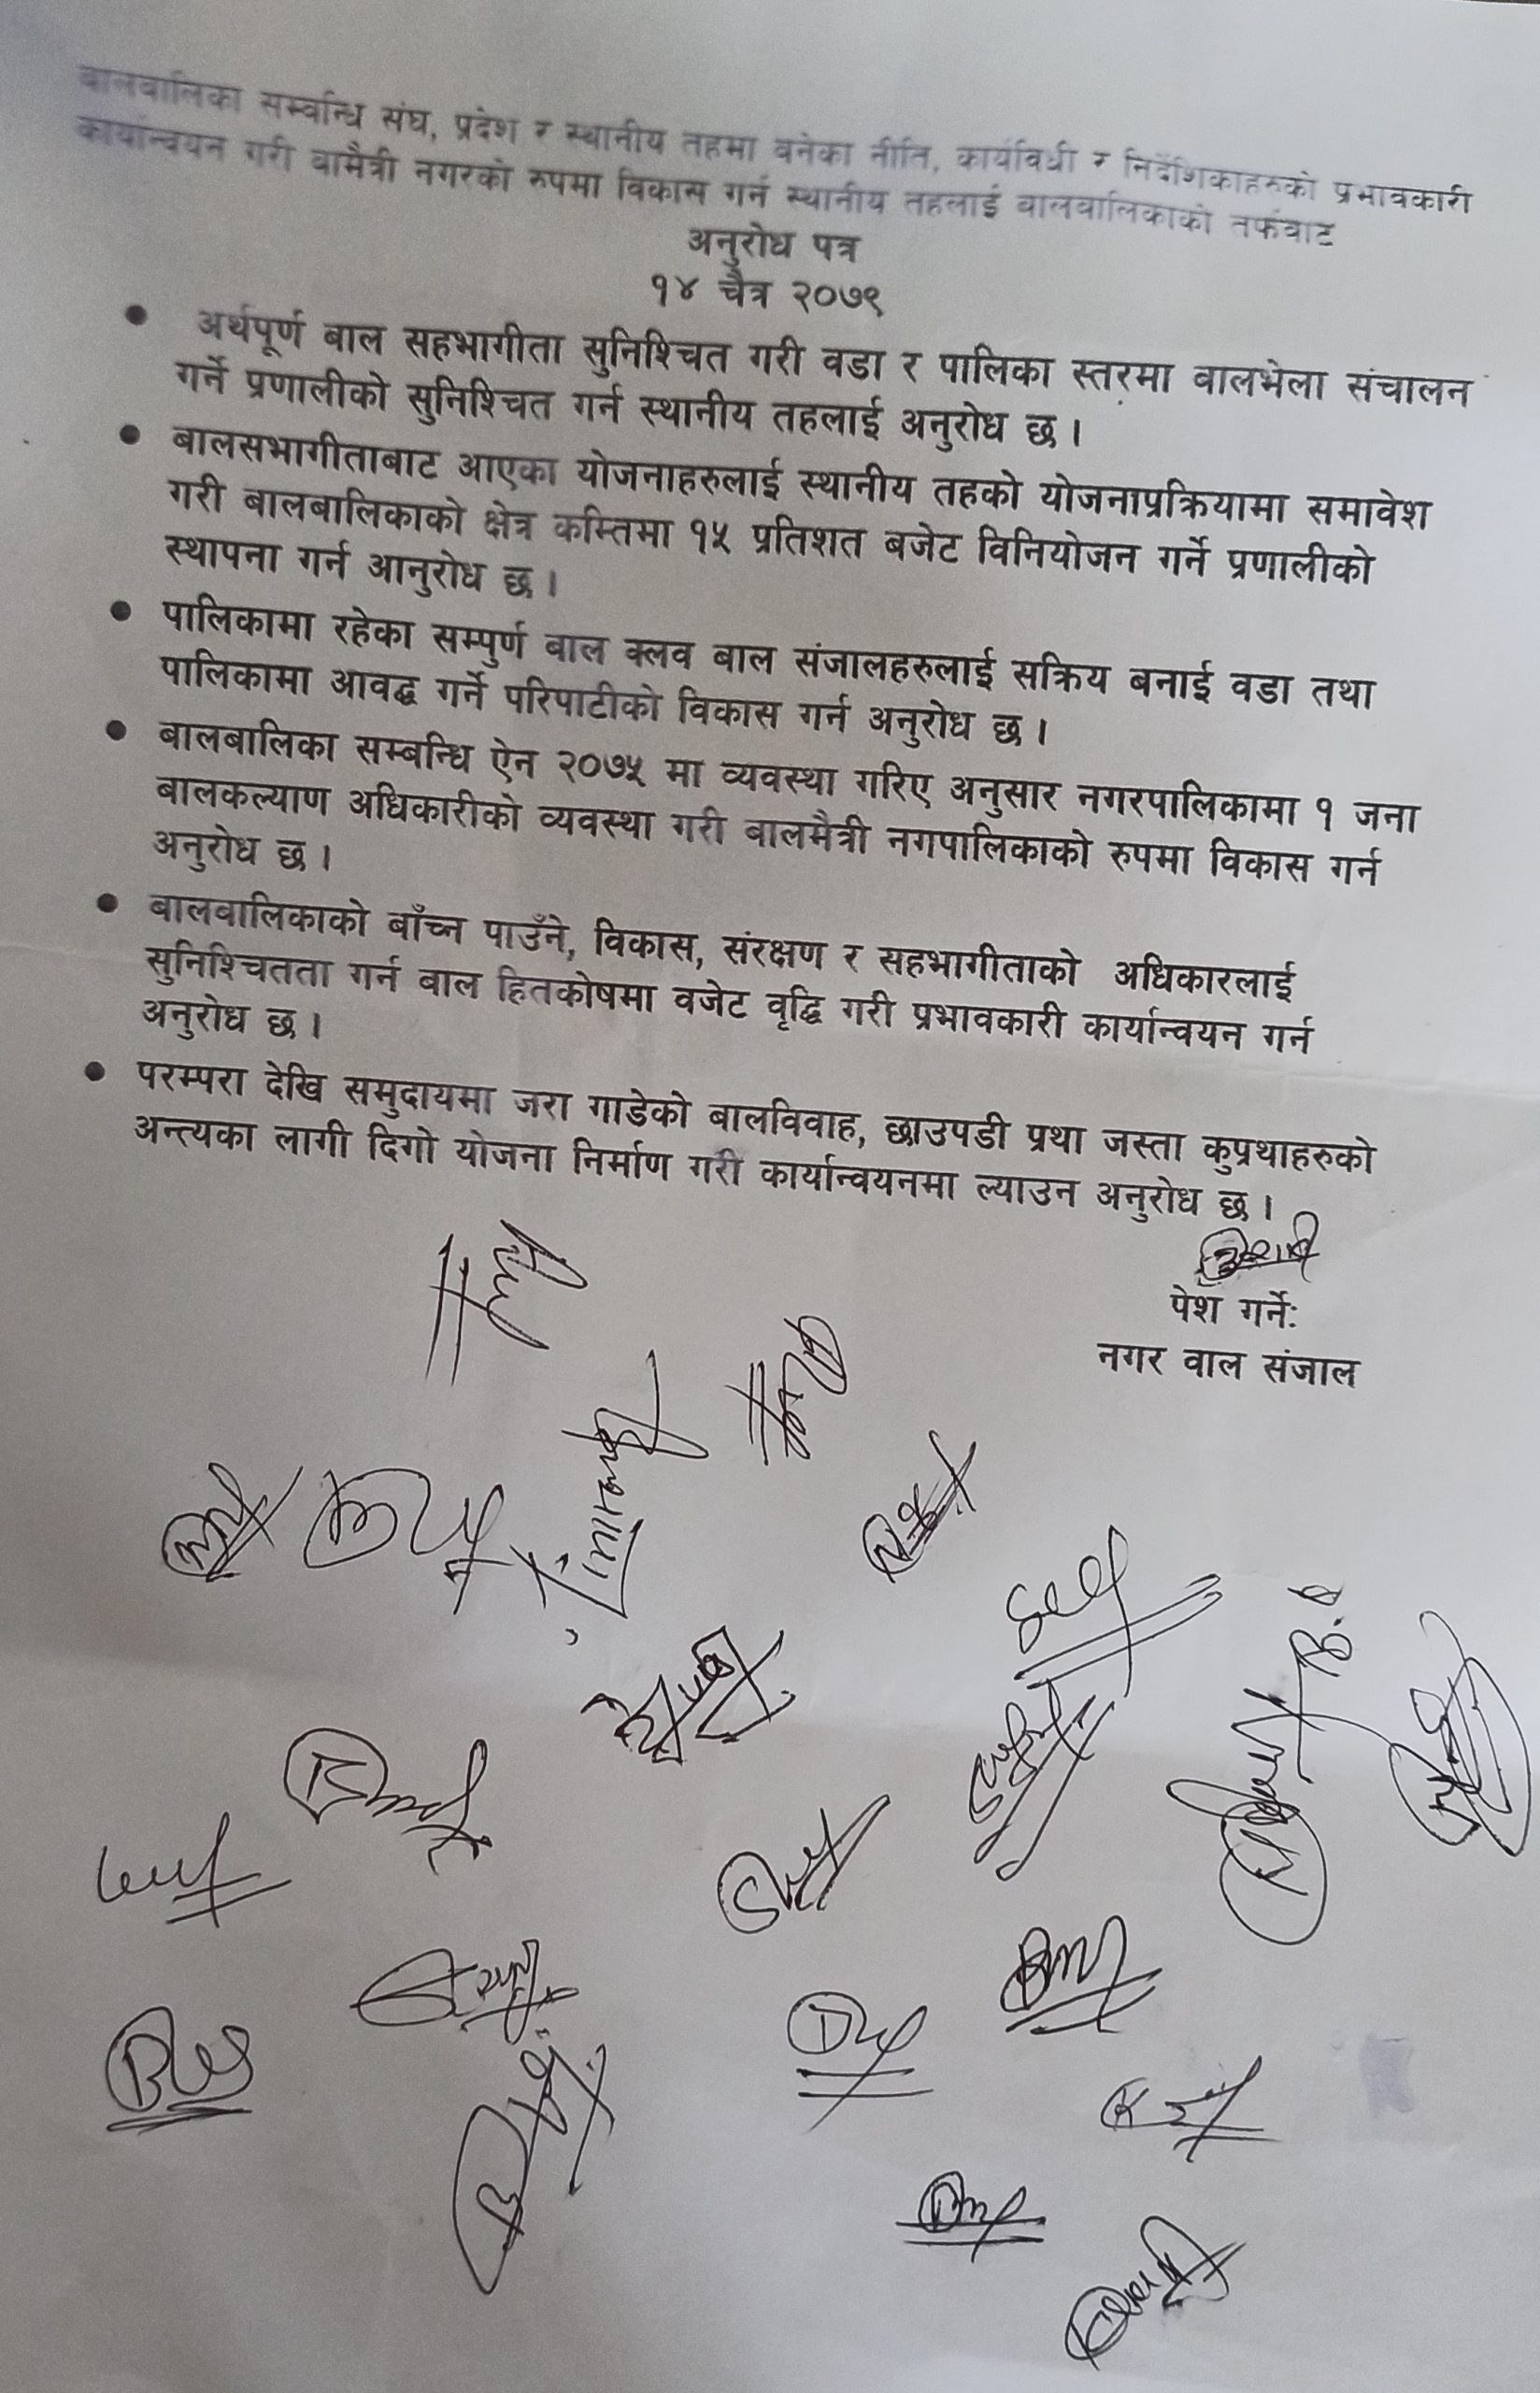 बालबालिका सम्वन्धि संघ, प्रदेश र स्थानीय तहमा बनेका नीति, कार्यविधी र निर्देशिकाहरुको प्रभावकारी
कार्यान्वयन गरी बामैत्री नगरको रुपमा विकास गर्न स्थानीय तहलाई बालबालिकाको तर्फबाट
अनुरोध पत्र
१४ चैत्र २०७९
● अर्थपूर्ण बाल सहभागीता सुनिश्चित गरी वडा र पालिका स्तरमा बालभेला संचालन
गर्ने प्रणालीको सुनिश्चित गर्न स्थानीय तहलाई अनुरोध छ ।
● बालसभागीताबाट आएका योजनाहरुलाई स्थानीय तहको योजनाप्रक्रियामा समावेश
गरी बालबालिकाको क्षेत्र कम्तिमा १५ प्रतिशत बजेट विनियोजन गर्ने प्रणालीको
स्थापना गर्न आनुरोध छ ।
● पालिकामा रहेका सम्पुर्ण बाल क्लव बाल संजालहरुलाई सक्रिय बनाई वडा तथा
पालिकामा आवद्ध गर्ने परिपाटीको विकास गर्न अनुरोध छ ।
● बालबालिका सम्बन्धि ऐन २०७५ मा व्यवस्था गरिए अनुसार नगरपालिकामा १ जना
बालकल्याण अधिकारीको व्यवस्था गरी बालमैत्री नगपालिकाको रुपमा विकास गर्न
अनुरोध छ ।
● बालबालिकाको बाँच्न पाउँने, विकास, संरक्षण र सहभागीताको अधिकारलाई
सुनिश्चितता गर्न बाल हितकोषमा वजेट वृद्धि गरी प्रभावकारी कार्यान्वयन गर्न
अनुरोध छ ।
● परम्परा देखि समुदायमा जरा गाडेको बालविवाह, छाउपडी प्रथा जस्ता कुप्रथाहरुको
अन्त्यका लागी दिगो योजना निर्माण गरी कार्यान्वयनमा ल्याउन अनुरोध छ ।
पेश गर्ने:
नगर वाल संजाल